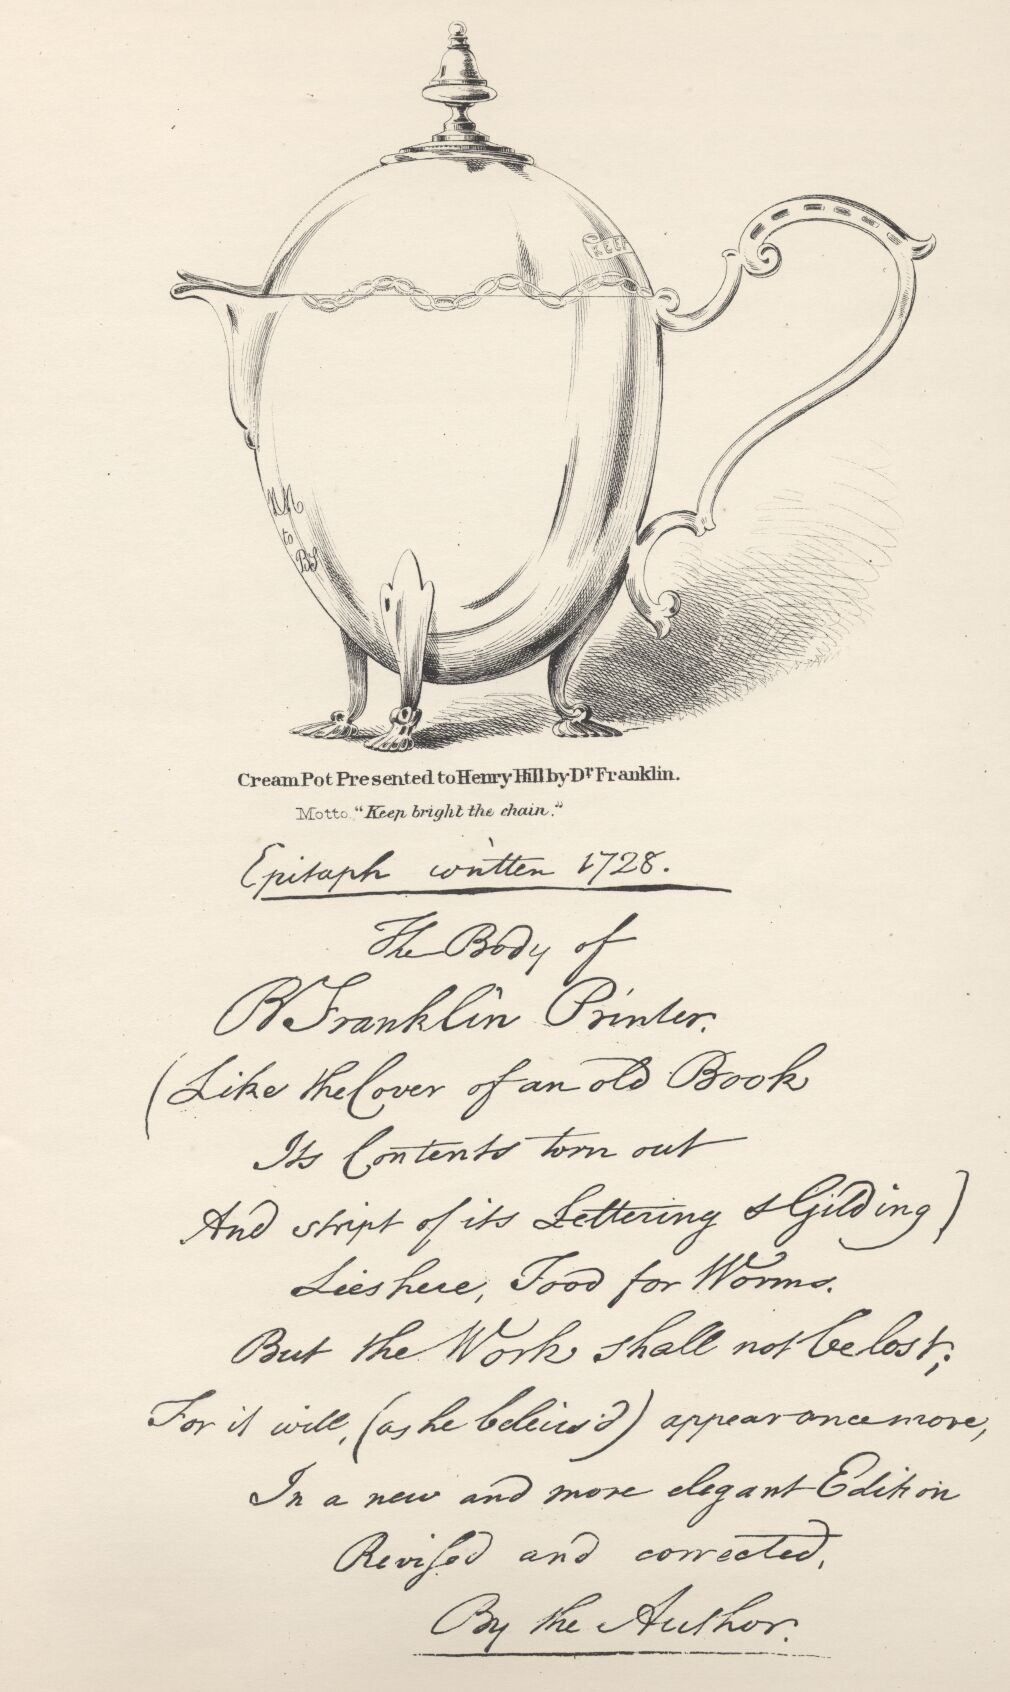 KEEP
to
Cream Pot Presented to Henry Hill by Dr Franklin.
Motto. "Keep bright the chain."
Epitaph written 1728.
The Body of
B Franklin Printer.
(Like the Cover of an old Book
Its Contents torn out
And stript of its Lettering & Gilding)
Lies here, Food for Worms.
But the Work shall not be lost;
For it will, (as he beleiv'd) appear once more,
In a new and more elegant Edition
Revised and corrected,
By the Author.